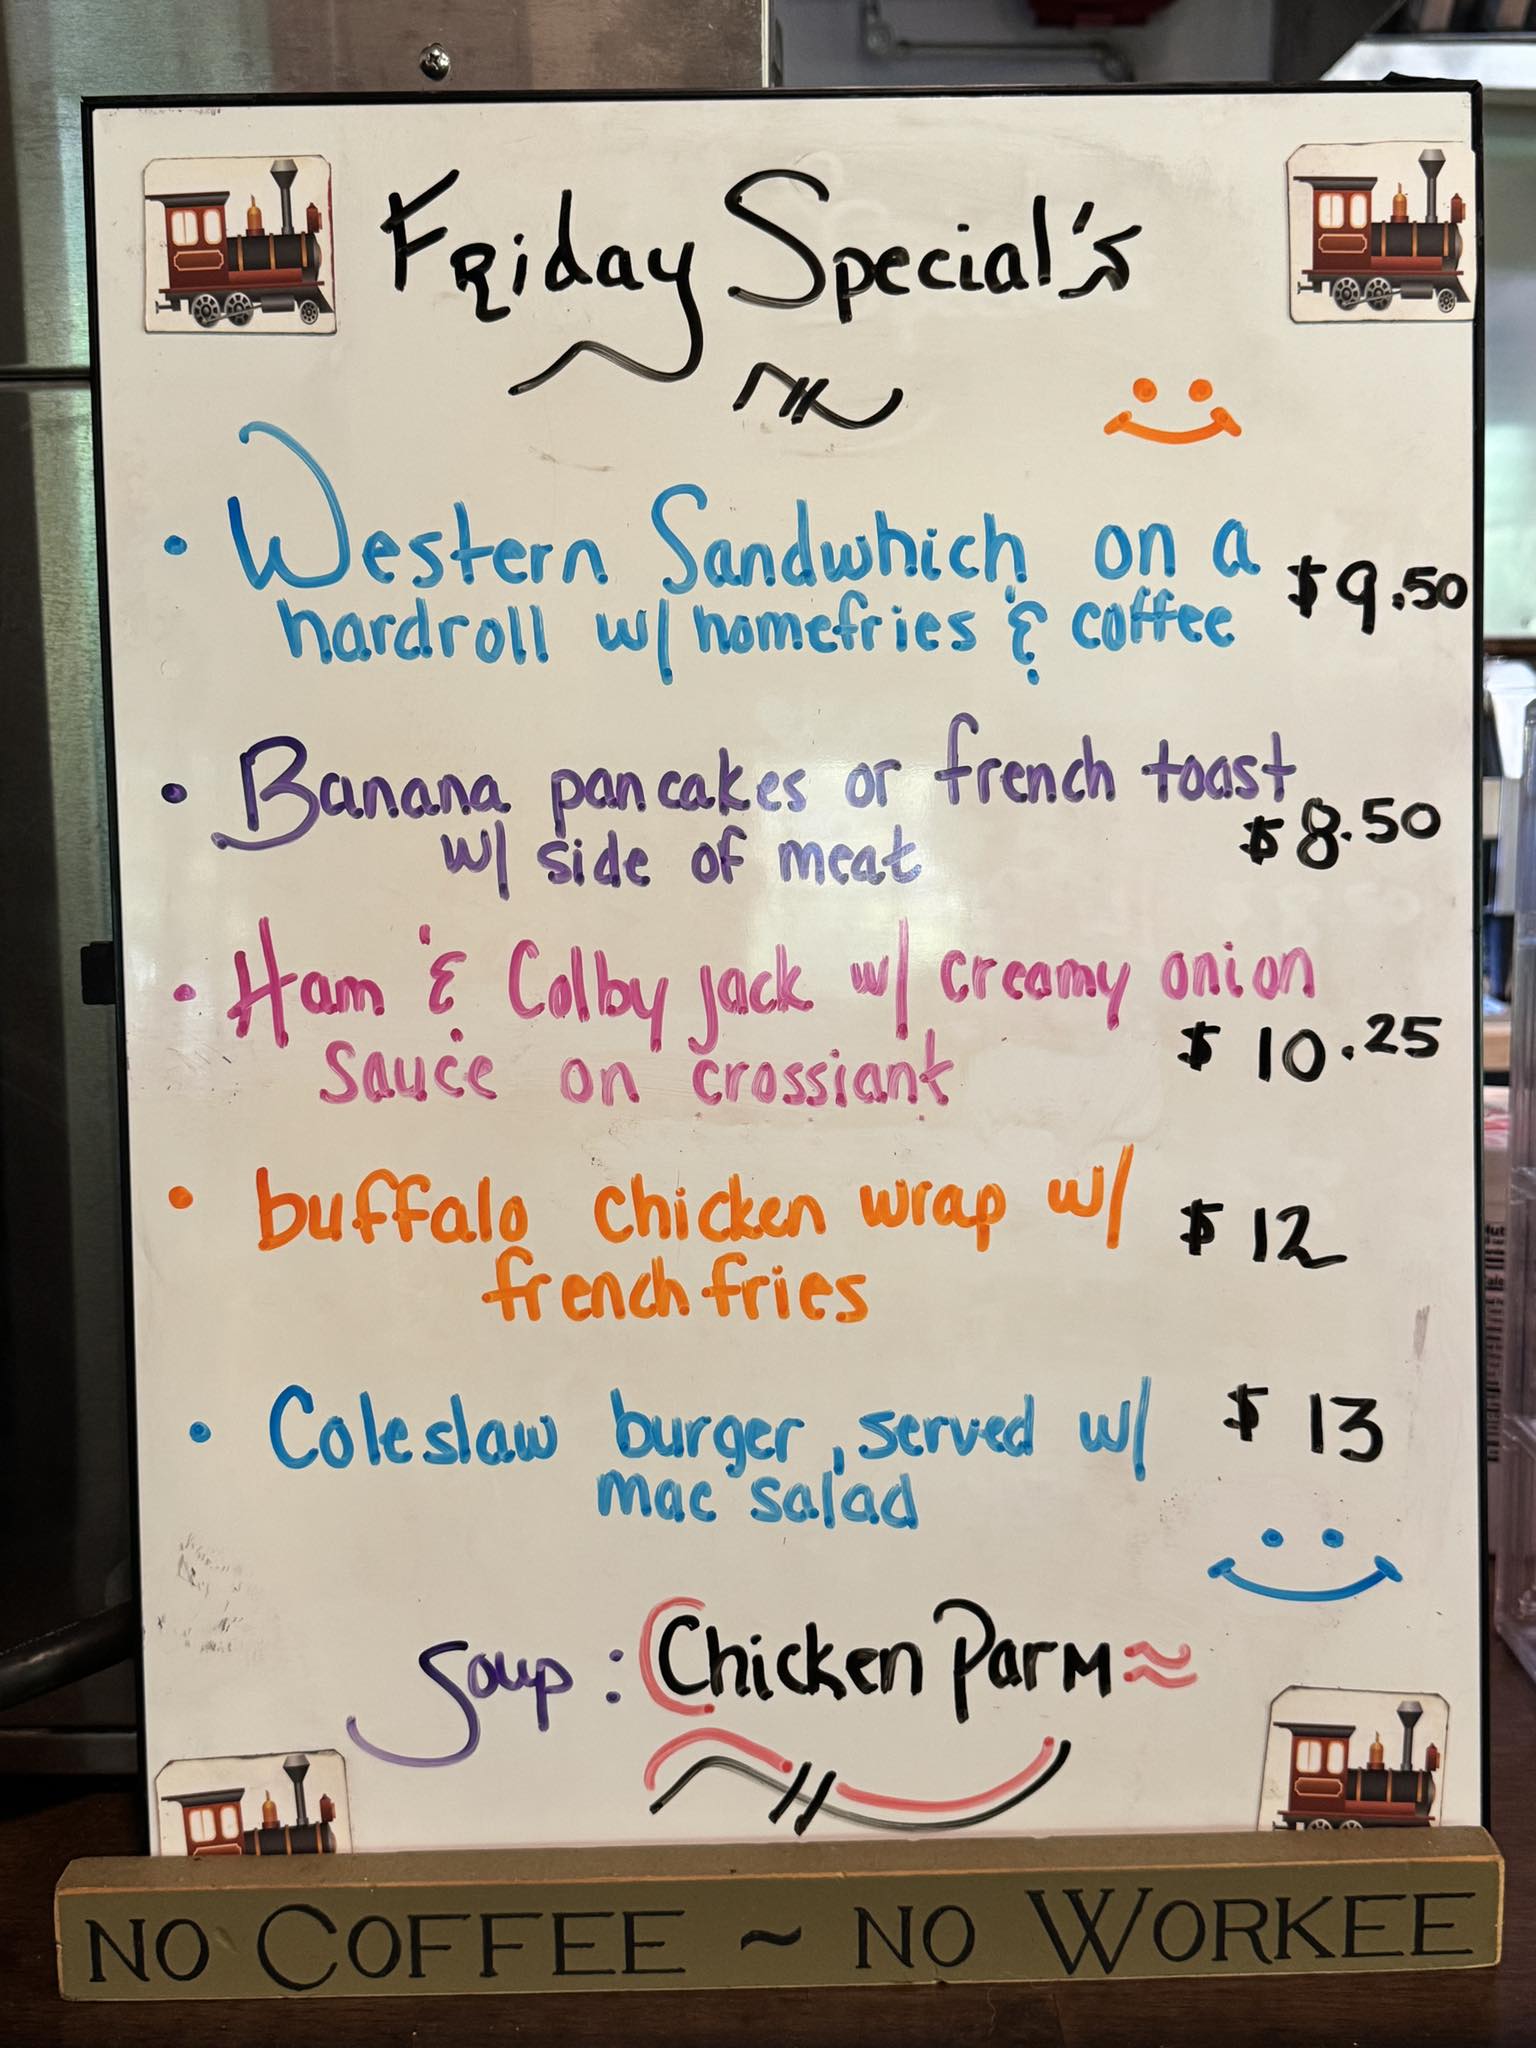 Friday Special's
• Western Sandwhich on a
hardroll w/ homefries & coffee $9.50
• Banana pancakes or french toast
w/ side of meat $8.50
• Ham & Colby jack w/ creamy onion
sauce on crossiant $10.25
• buffalo chicken wrap w/ $12
french fries
• Coleslaw burger, served w/ $13
mac salad
Soup: Chicken Parm
NO COFFEE ~ NO WORKEE